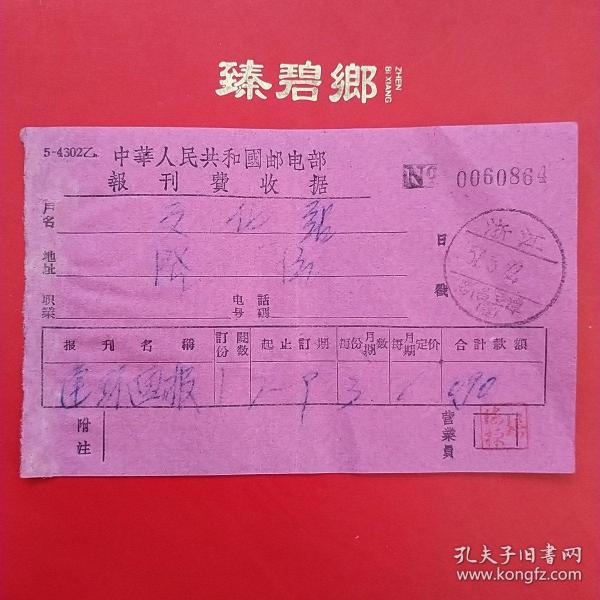 臻碧鄉
ZHEN
BI XIANG
5-4302乙
中華人民共和國邮电部
報刊費收据
№ 0060864
户名 文化館
地址
职業 电話号碼
日戳
浙江
57.5.22
报刊名稱 訂閱份数 起止訂期 每份月期数 每月期定价 合計款額
連环画报 1 7-9 3 .90
附注
营業員
孔夫子旧书网
www.kongfz.com